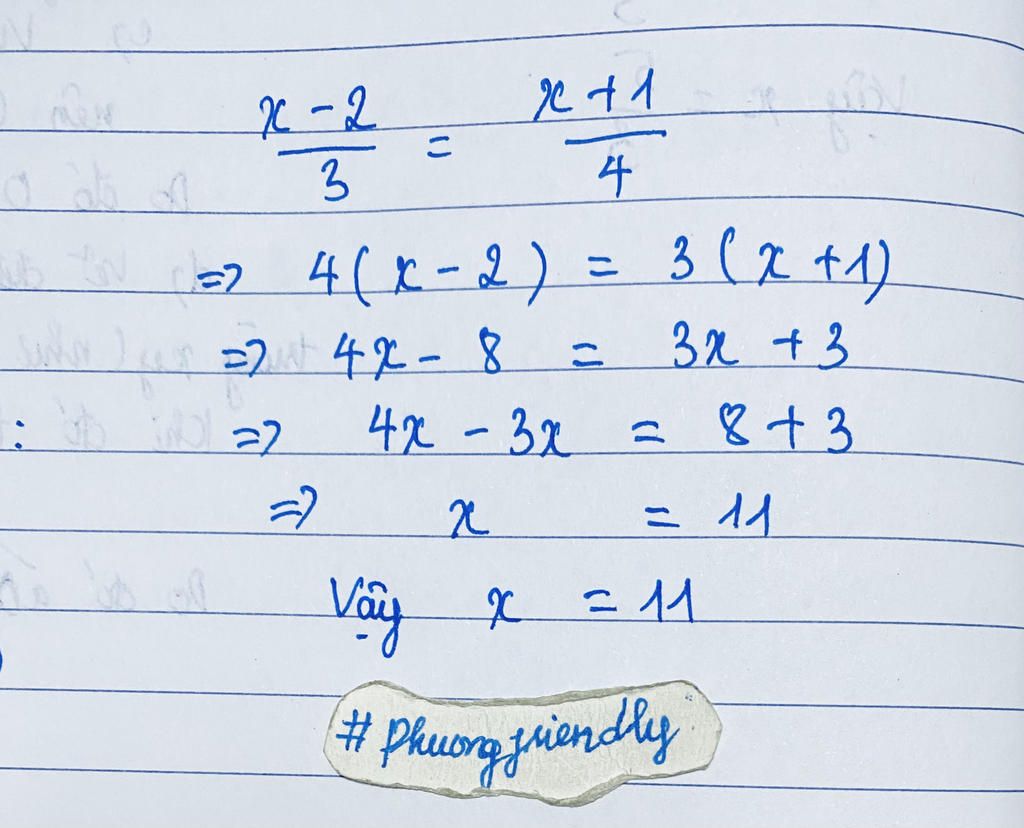 x - 2 / 3 = x + 1 / 4
=> 4(x - 2) = 3(x + 1)
=> 4x - 8 = 3x + 3
: => 4x - 3x = 8 + 3
=> x = 11
Vậy x = 11
#Phuongfriendly